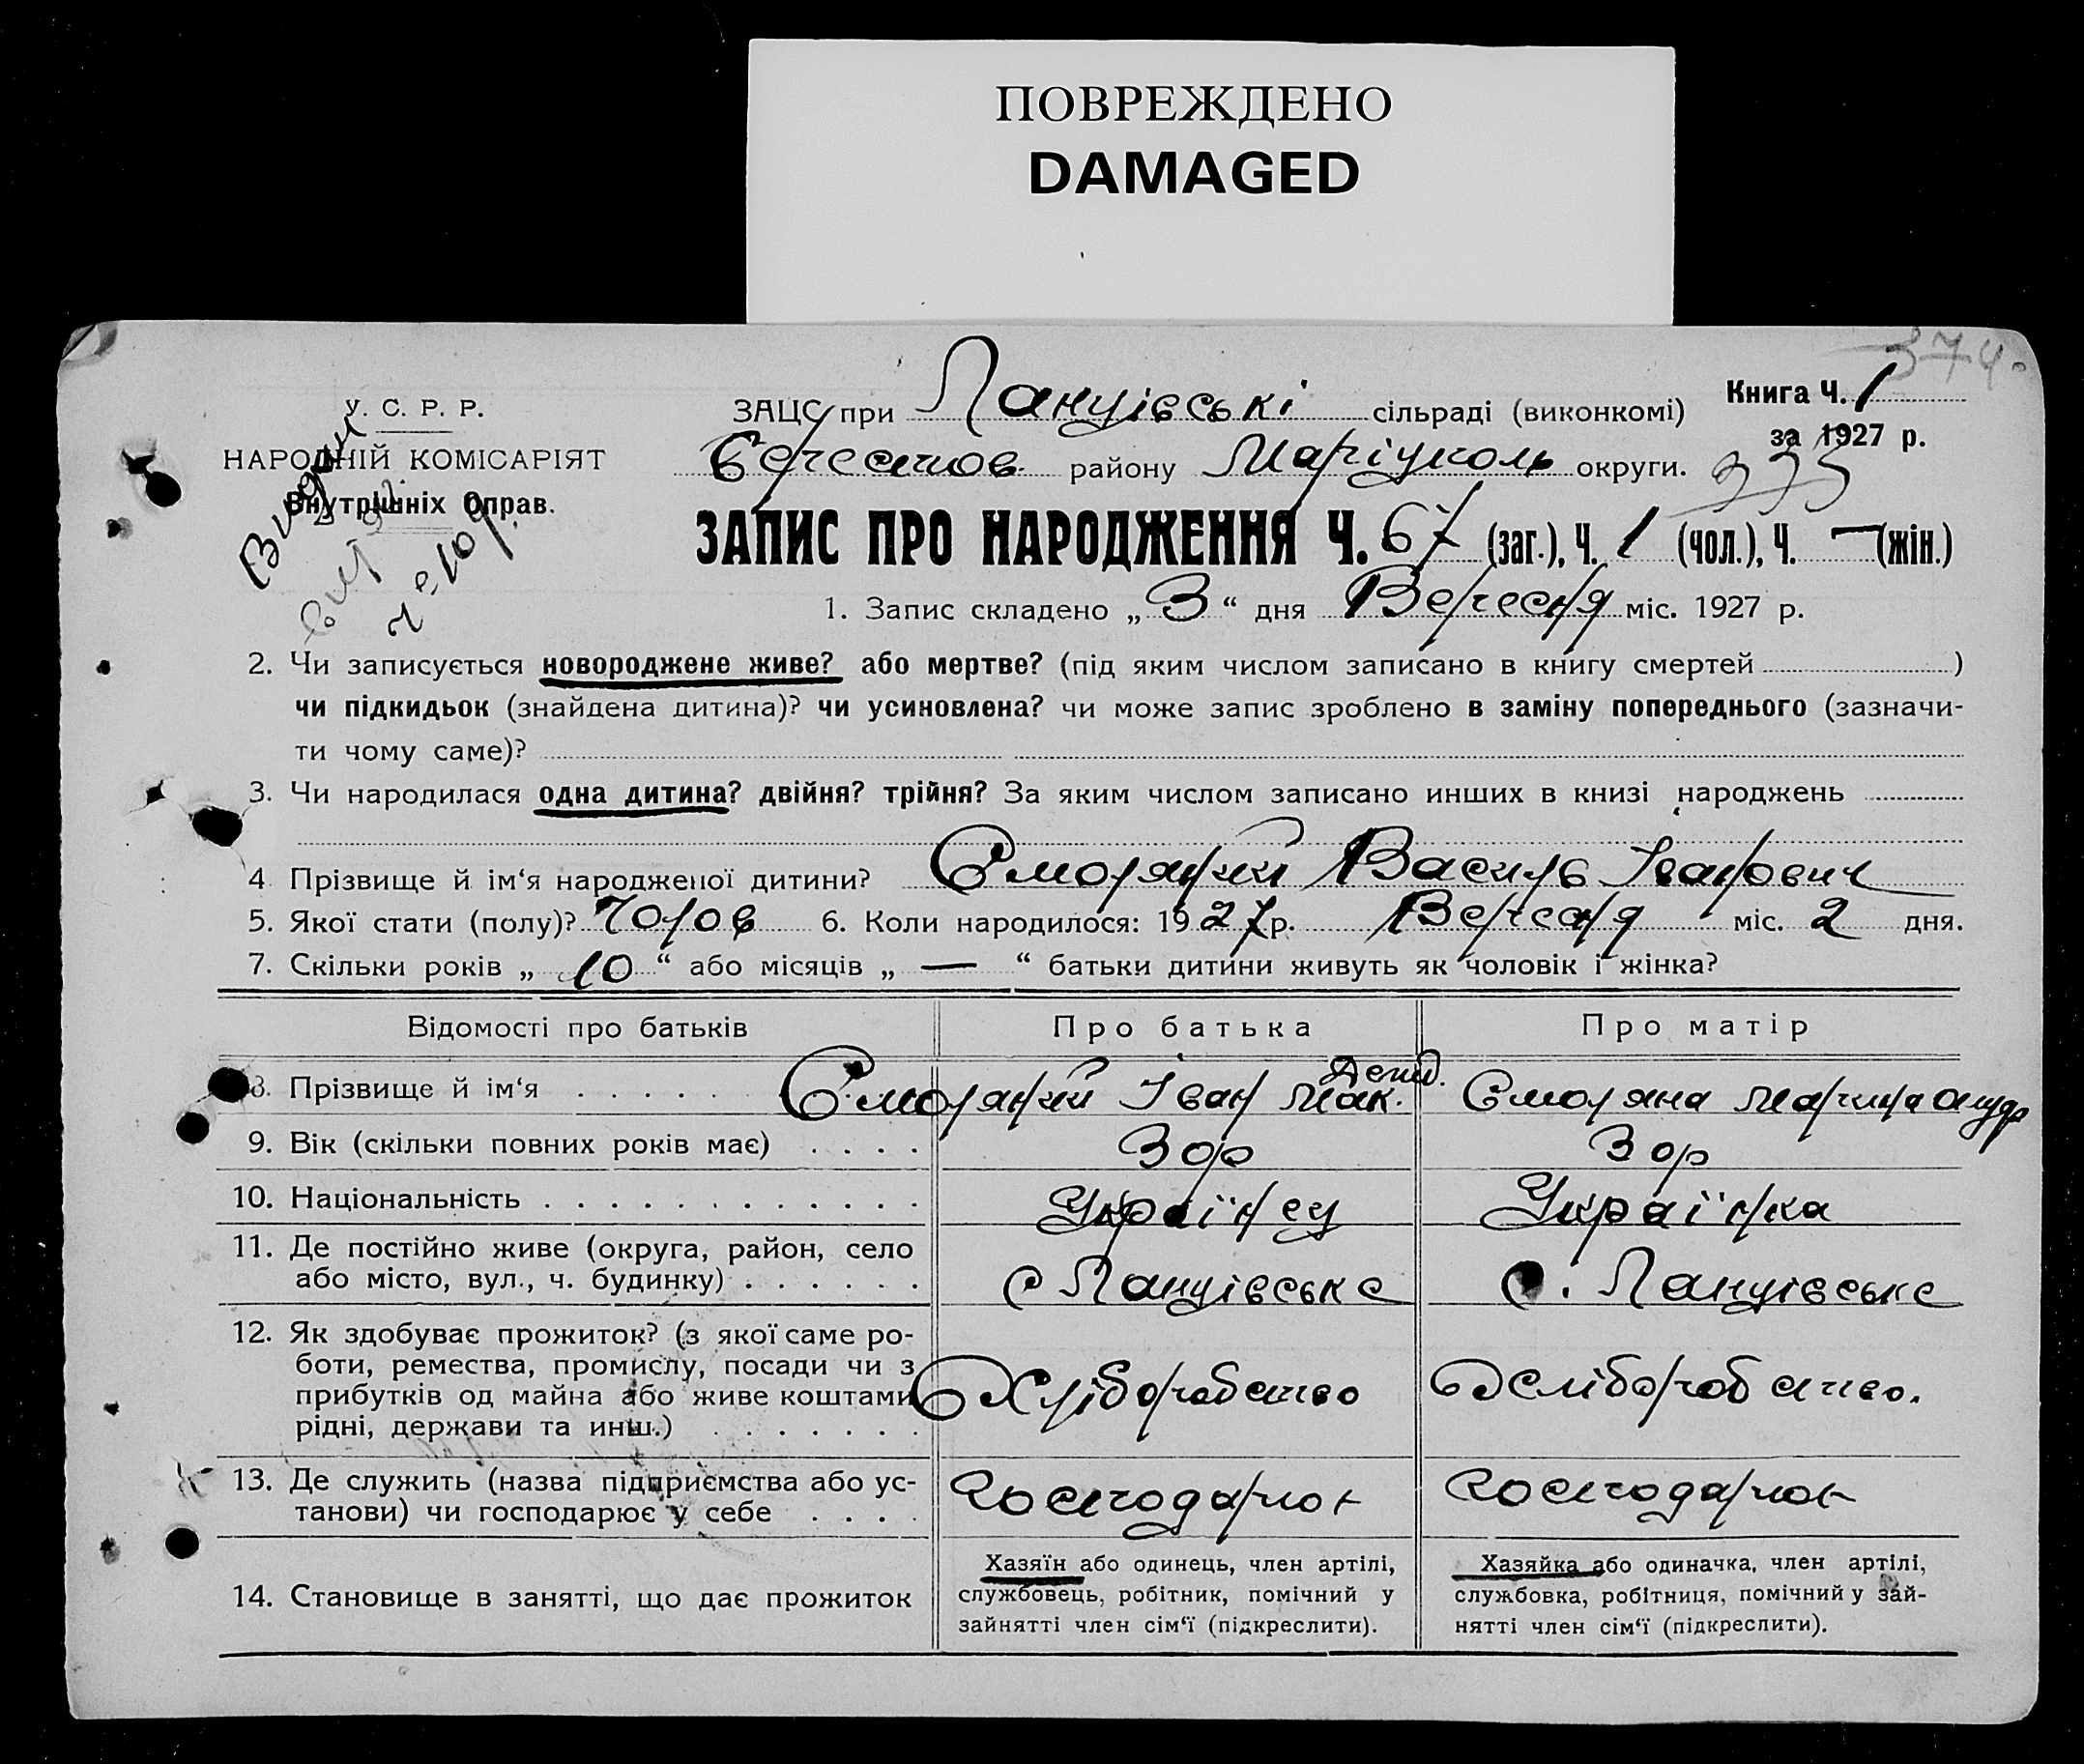 ПОВРЕЖДЕНО
DAMAGED
374
У. С. Р. Р.
НАРОДНІЙ КОМІСАРІЯТ
Внутрішніх Справ.
ЗАЦС при Ланцівські сільраді (виконкомі)
Книга Ч. 1
за 1927 р.
Берестов. району Маріуполь округи.
335
ЗАПИС ПРО НАРОДЖЕННЯ Ч. 67 (заг.), Ч. 1 (чол.), Ч. — (жін.)
1. Запис складено „ 3 “ дня Вересня міс. 1927 р.
2. Чи записується новороджене живе? або мертве? (під яким числом записано в книгу смертей )
чи підкидьок (знайдена дитина)? чи усиновлена? чи може запис зроблено в заміну попереднього (зазначи-
ти чому саме)?
3. Чи народилася одна дитина? двійня? трійня? За яким числом записано инших в книзі народжень
4 Прізвище й ім‘я народженої дитини? Смоляний Василь Іванович
5. Якої стати (полу)? Чолов 6. Коли народилося: 1927 р. Вересня міс. 2 дня.
7. Скільки років „ 10 “ або місяців „ — “ батьки дитини живуть як чоловік і жінка?
Відомості про батьків Про батька Про матір
8. Прізвище й ім‘я Іван Мак.
9. Вік (скільки повних років має) 30р 30р
10. Національність Українец Українка
11. Де постійно живе (округа, район, село
або місто, вул., ч. будинку) с Ланцівське с. Ланцівське
12. Як здобуває прожиток? (з якої саме ро-
боти, ремества, промислу, посади чи з
прибутків од майна або живе коштами
рідні, держави та инш.) Хліборобство Хліборобство.
13. Де служить (назва підприємства або ус-
танови) чи господарює у себе
14. Становище в занятті, що дає прожиток
Хазяїн або одинець, член артілі,
службовець, робітник, помічний у
зайнятті член сім‘ї (підкреслити).
Хазяйка або одиначка, член артілі,
службовка, робітниця, помічний у зай-
нятті член сім‘ї (підкреслити).